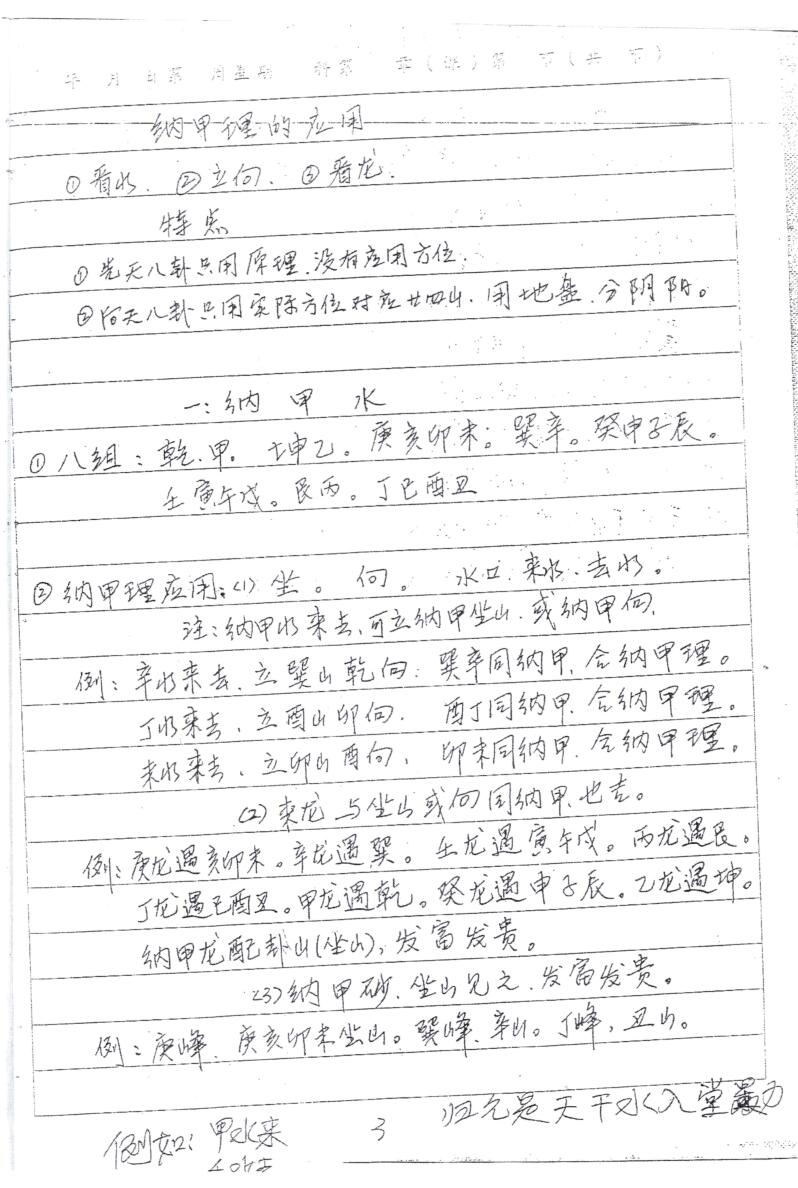 年 月 日第 周星期 科第 章(课)第 节(共 节)
纳甲理的应用
①看水. ②立向. ③看龙.
特点
①先天八卦只用原理.没有应用方位.
②后天八卦只用实际方位对应廿四山.用地盘.分阴阳。
一:纳 甲 水
①八组:乾.甲. 坤乙。庚亥卯未。巽辛。癸申子辰。
壬寅午戌。艮丙。丁巳酉丑
②纳甲理应用:(1)坐。向。 水口.来水.去水。
注:纳甲水来去.可立纳甲坐山.或纳甲向.
例:辛水来去.立巽山乾向:巽辛同纳甲.合纳甲理。
丁水来去.立酉山卯向. 酉丁同纳甲.合纳甲理。
未水来去.立卯山酉向. 卯未同纳甲.合纳甲理。
(2)来龙与坐山或向同纳甲.也吉。
例:庚龙遇亥卯未。辛龙遇巽。壬龙遇寅午戌。丙龙遇艮。
丁龙遇巳酉丑。甲龙遇乾。癸龙遇申子辰。乙龙遇坤。
纳甲龙配卦山(坐山),发富发贵。
(3)纳甲砂.坐山见之.发富发贵。
例:庚峰.庚亥卯未坐山。巽峰.辛山。丁峰,丑山。
归元是天干水入堂 力
例如:甲水来
3